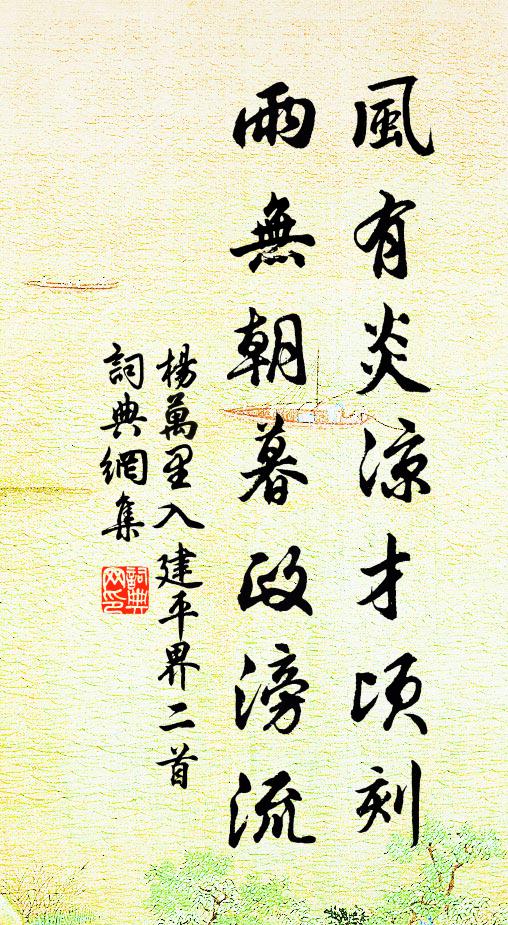 風有炎涼才頃刻
雨無朝暮政滂流
楊萬里入建平界二首
詞典網集
詞典網印